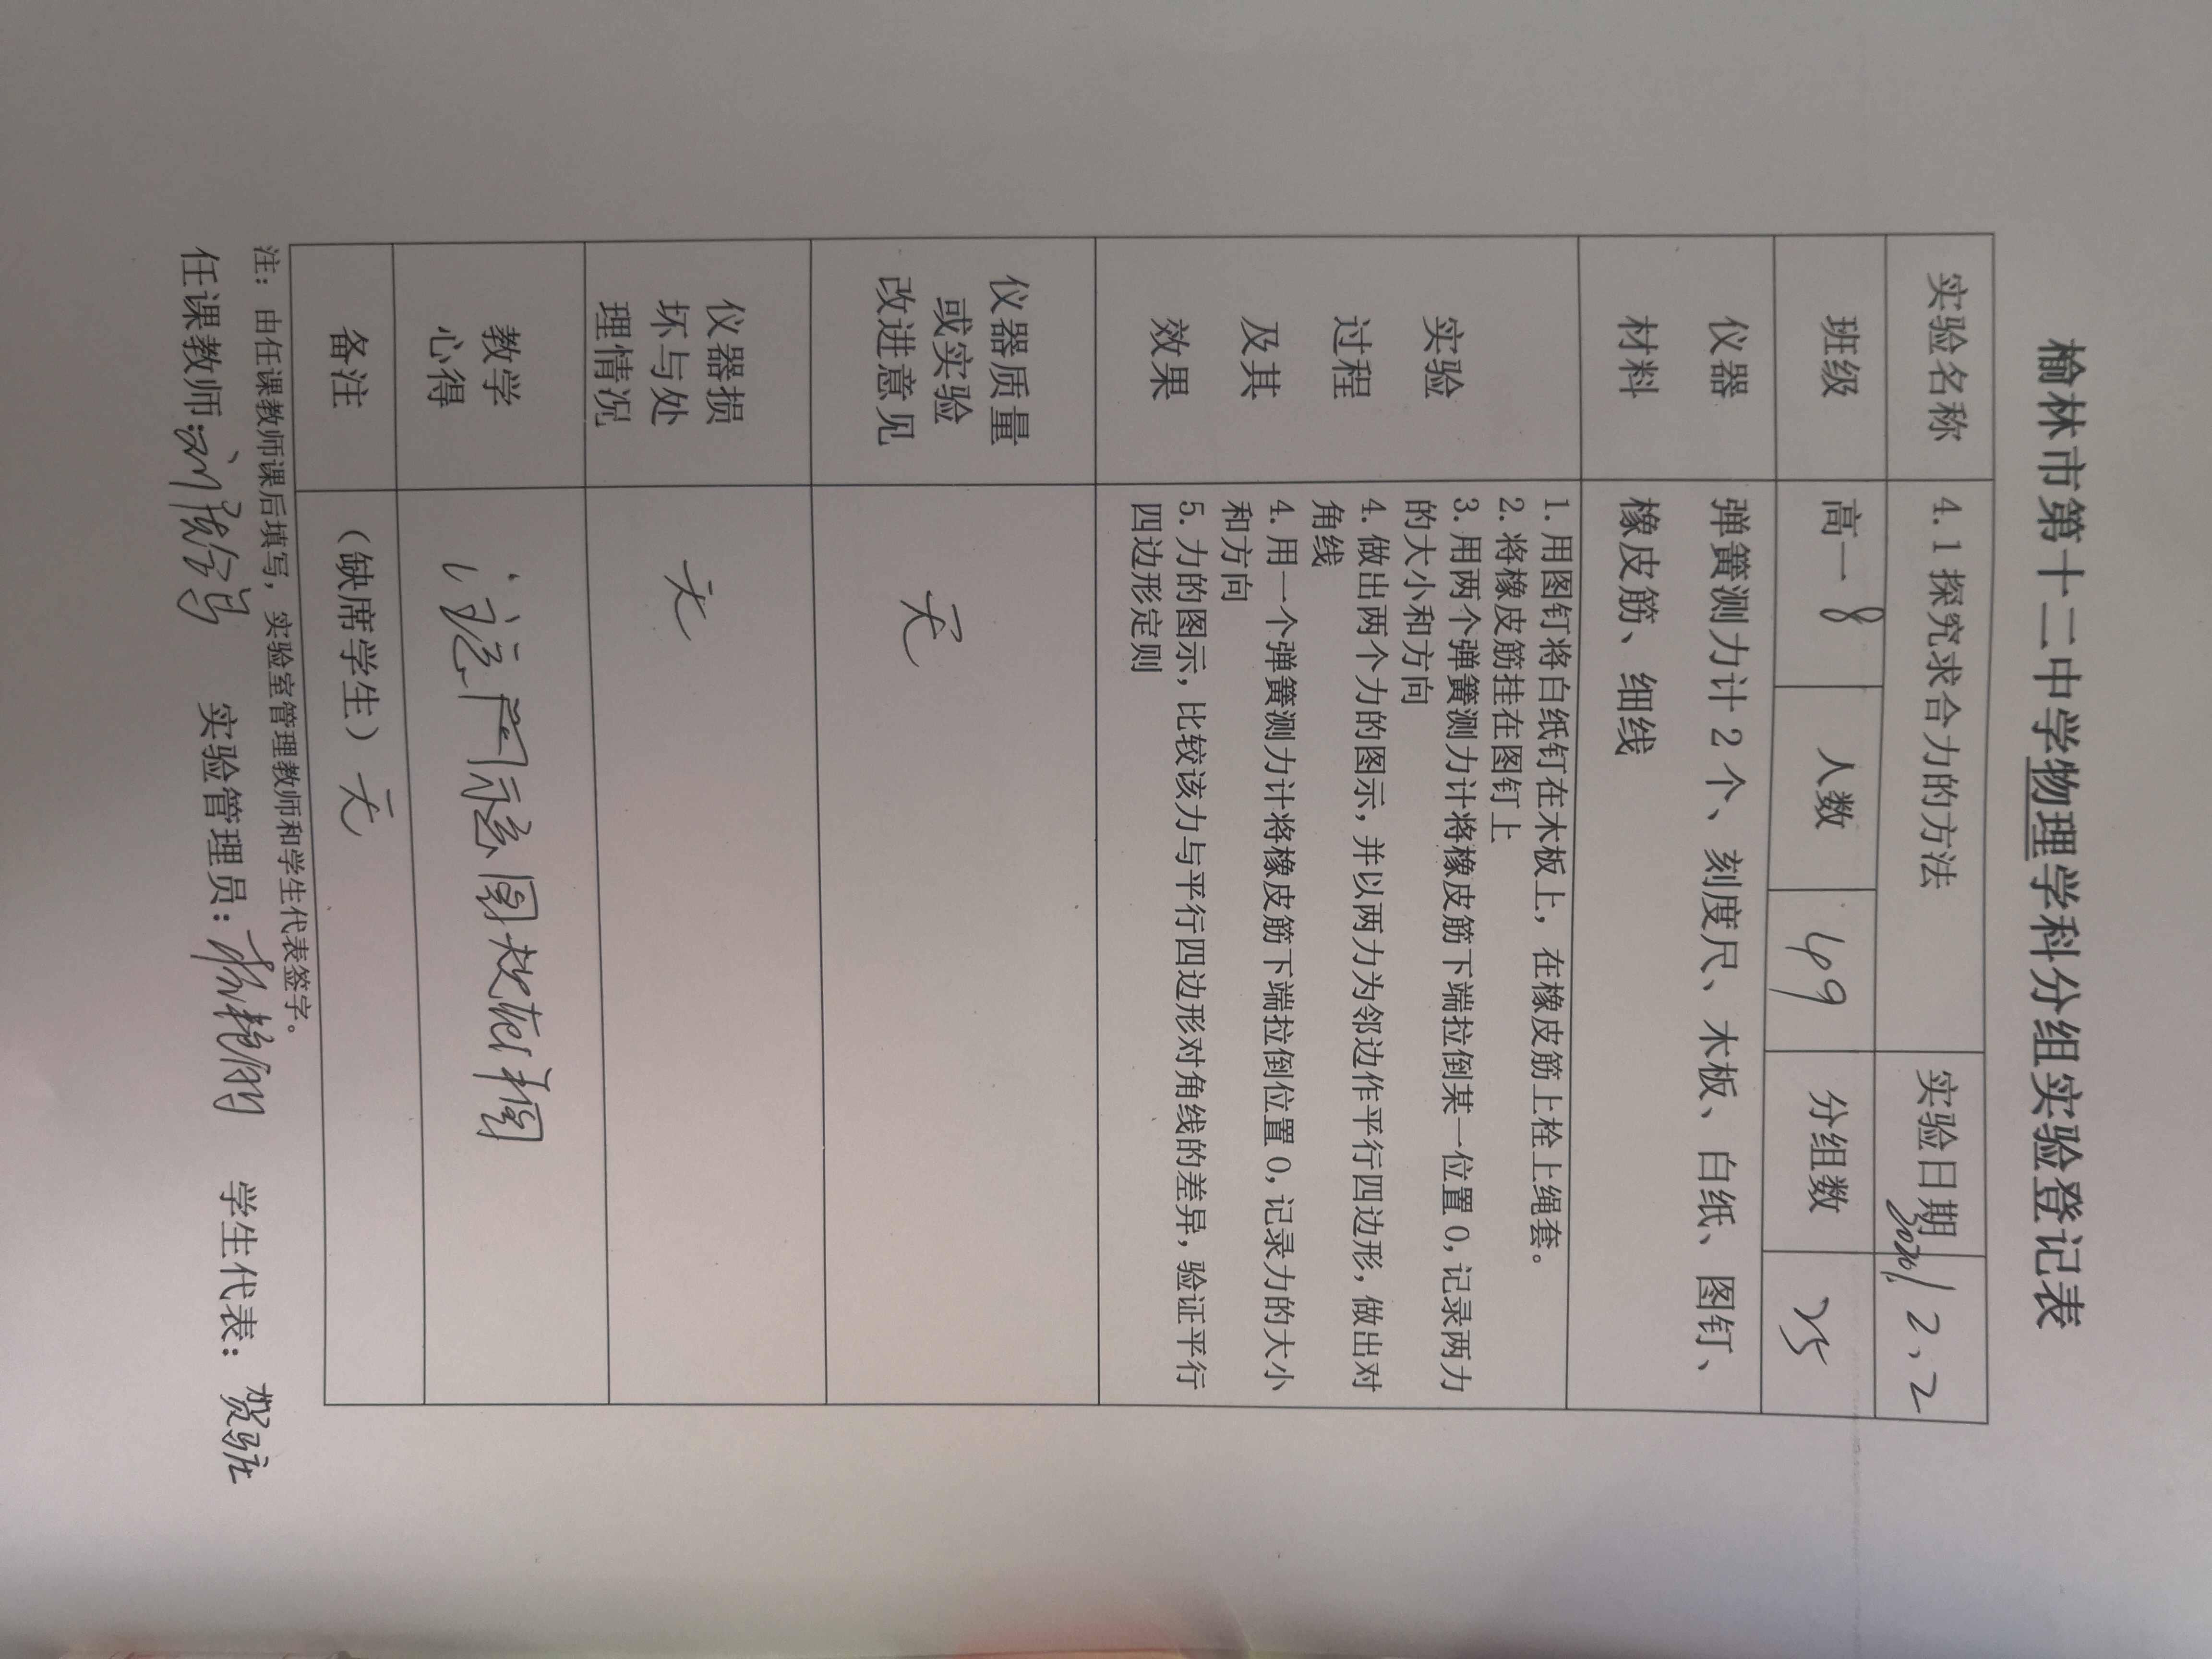 榆林市第十二中学物理学科分组实验登记表
实验名称 4.1探究求合力的方法 实验日期 12.2
班级 高一8 人数 49 分组数 25
仪器 弹簧测力计2个、刻度尺、木板、白纸、图钉、
材料 橡皮筋、细线
实验
过程
及其
效果
1.用图钉将白纸钉在木板上，在橡皮筋上栓上绳套。
2.将橡皮筋挂在图钉上
3.用两个弹簧测力计将橡皮筋下端拉倒某一位置0,记录两力
的大小和方向
4.做出两个力的图示,并以两力为邻边作平行四边形,做出对
角线
4.用一个弹簧测力计将橡皮筋下端拉倒位置0,记录力的大小
和方向
5.力的图示,比较该力与平行四边形对角线的差异,验证平行
四边形定则
仪器质量
或实验
改进意见
无
仪器损
坏与处
理情况
无
教学
心得
注意 效果相同
备注 （缺席学生）无
注：由任课教师课后填写，实验室管理教师和学生代表签字。
任课教师: 实验管理员: 学生代表: